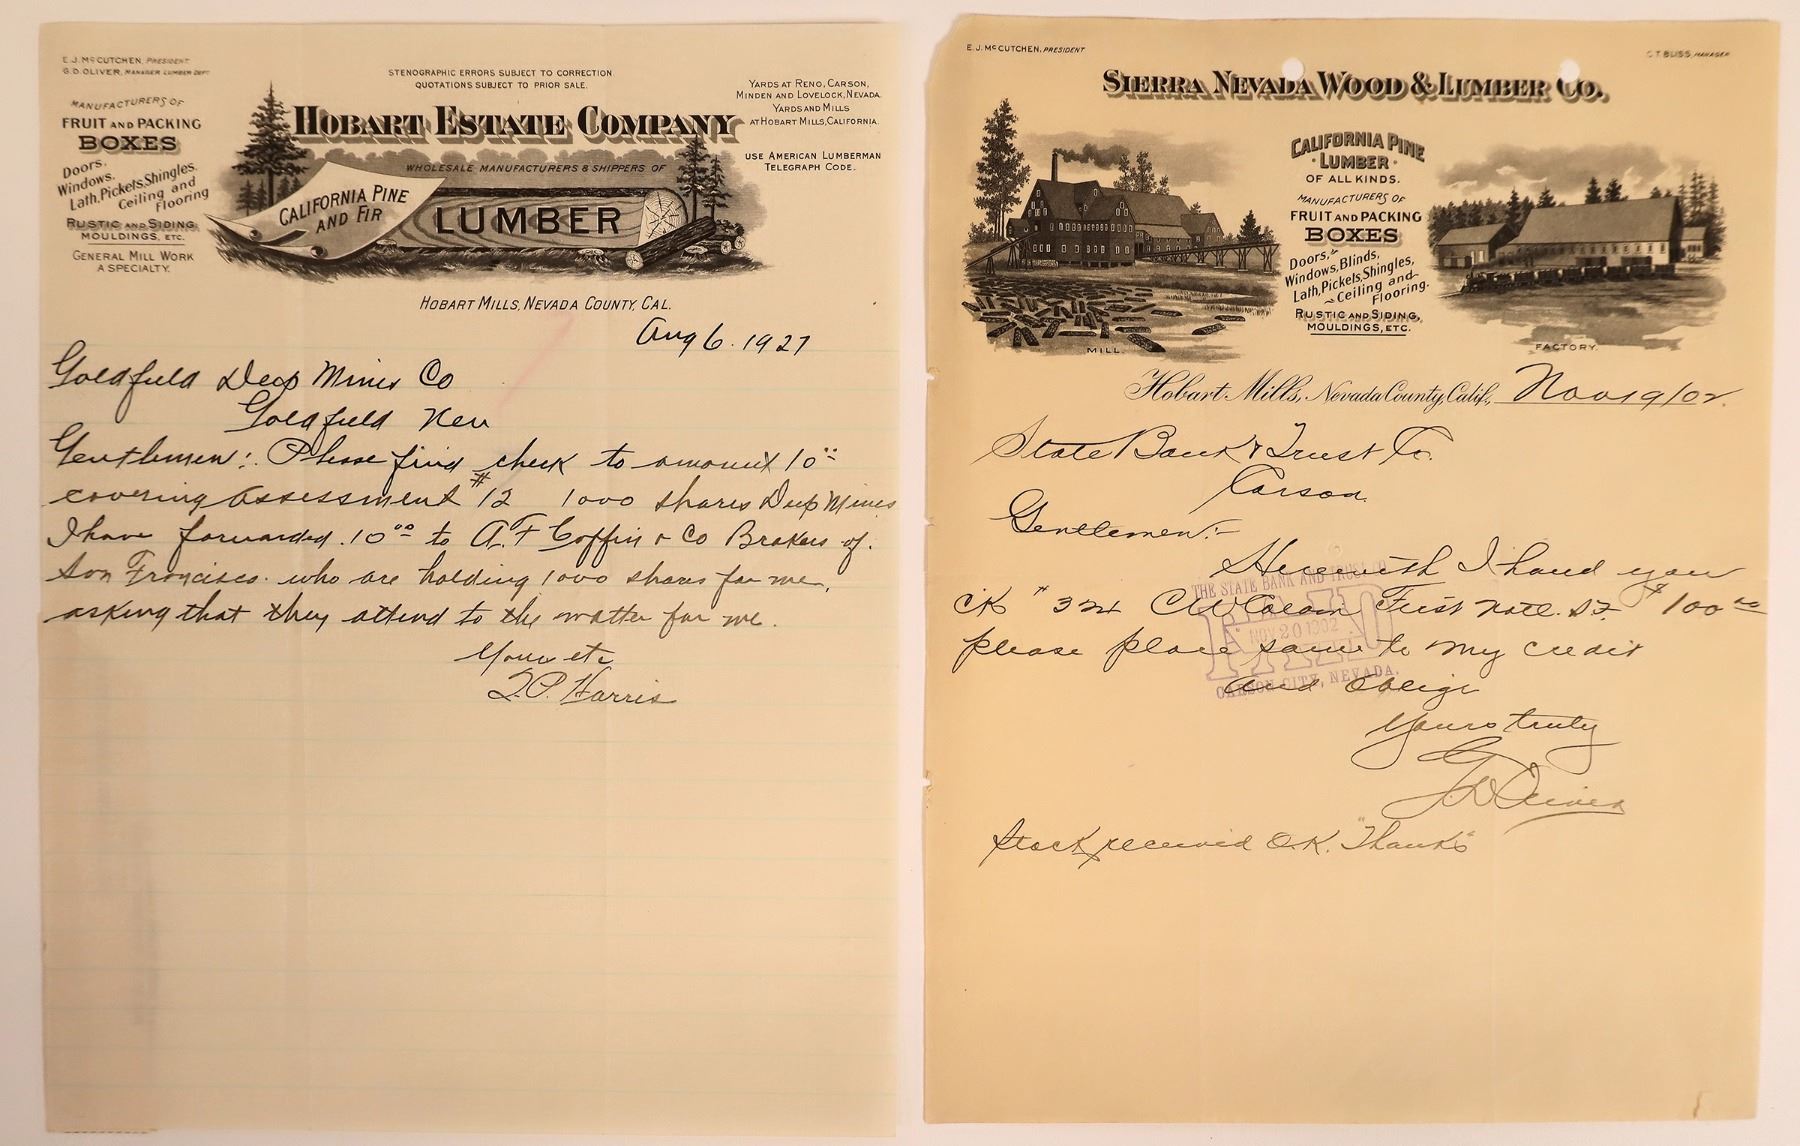 E.J. McCUTCHEN, PRESIDENT
G.D. OLIVER, MANAGER LUMBER DEPT
MANUFACTURERS OF
FRUIT AND PACKING
BOXES
Doors,
Windows,
Lath, Pickets, Shingles.
Ceiling and
Flooring
RUSTIC AND SIDING,
MOULDINGS, ETC.
GENERAL MILL WORK
A SPECIALTY.
STENOGRAPHIC ERRORS SUBJECT TO CORRECTION
QUOTATIONS SUBJECT TO PRIOR SALE.
HOBART ESTATE COMPANY
WHOLESALE MANUFACTURERS & SHIPPERS OF
CALIFORNIA PINE
AND FIR
LUMBER
YARDS AT RENO, CARSON,
MINDEN AND LOVELOCK, NEVADA.
YARDS AND MILLS
AT HOBART MILLS, CALIFORNIA.
USE AMERICAN LUMBERMAN
TELEGRAPH CODE.
HOBART MILLS, NEVADA COUNTY, CAL.
Aug 6. 1927
Goldfield Deep Mines Co
Goldfield Nev
Gentlemen: Please find check to amount 10.00
covering assessment #12 1000 shares Deep Mines
I have forwarded 10.00 to A.F Coffin & Co Brokers of.
San Francisco. who are holding 1000 shares for me,
asking that they attend to the matter for me.
Yours etc
Harris
E.J. McCUTCHEN, PRESIDENT
C.T. BLISS, MANAGER
SIERRA NEVADA WOOD & LUMBER CO.
CALIFORNIA PINE
LUMBER
OF ALL KINDS.
MANUFACTURERS OF
FRUIT AND PACKING
BOXES
Doors,
Windows, Blinds,
Lath, Pickets, Shingles,
Ceiling and
Flooring.
RUSTIC AND SIDING,
MOULDINGS, ETC.
MILL.
FACTORY.
Hobart Mills, Nevada County, Calif., Nov 19/02.
State Bank & Trust Co.
Carson.
Gentlemen:-
Herewith I hand you
CK # First Natl. S.F. $100.00
please place same to my credit
and oblige
THE STATE BANK AND TRUST CO
PAID
NOV 20 1902
CARSON CITY, NEVADA.
Yours truly
G D Oliver
Stock received O.K. "Thanks"